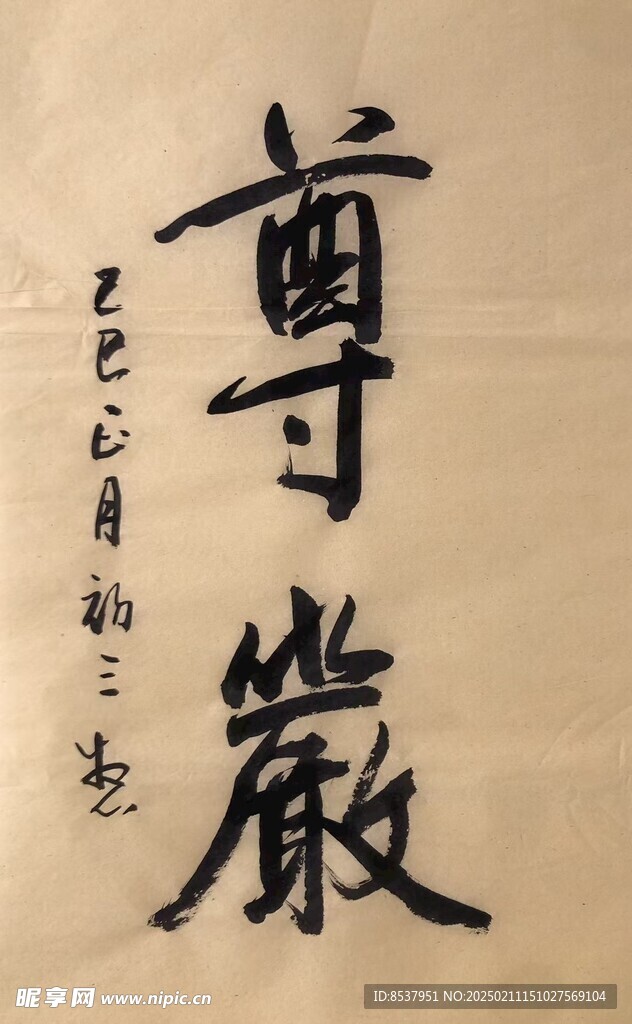 尊嚴
乙巳正月初三
昵享网 www.nipic.cn
ID:8537951 NO:20250211151027569104